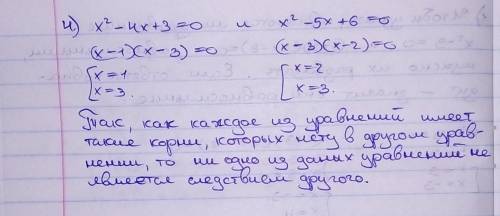 4) x² - 4x + 3 = 0 и x² - 5x + 6 = 0
(x-1)(x-3) = 0 (x-3)(x-2) = 0
[x = 1 [x = 2
[x = 3. [x = 3.
Так, как каждое из уравнений имеет
такие корни, которых нету в другом урав-
нении, то ни одно из даных уравнений не
является следствием другого.